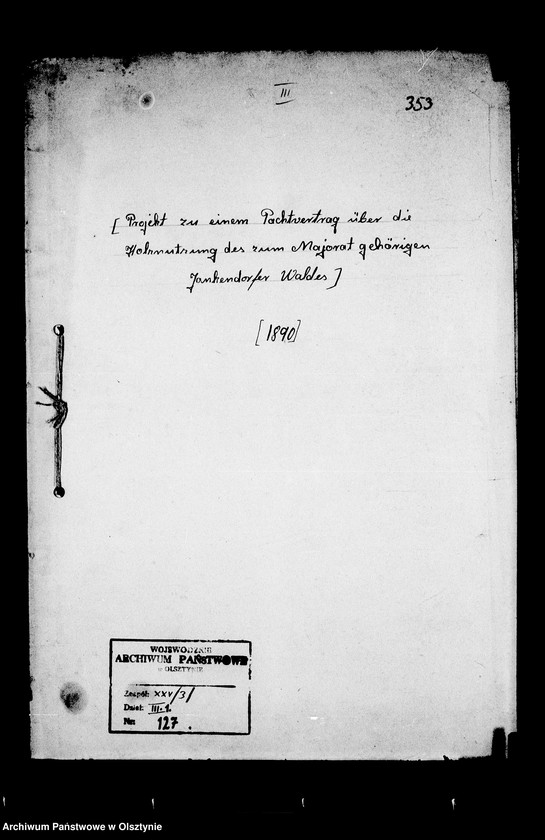 III
353
[ Projekt zu einem Pachtvertrag über die
Holznutzung des zum Majorat gehörigen
Jankendorfer Waldes ]
[1890]
WOJEWÓDZKIE
ARCHIWUM PAŃSTWOWE
w OLSZTYNIE
Zespół: XXV/3/
Dział: III.1.
Nr: 127.
Archiwum Państwowe w Olsztynie